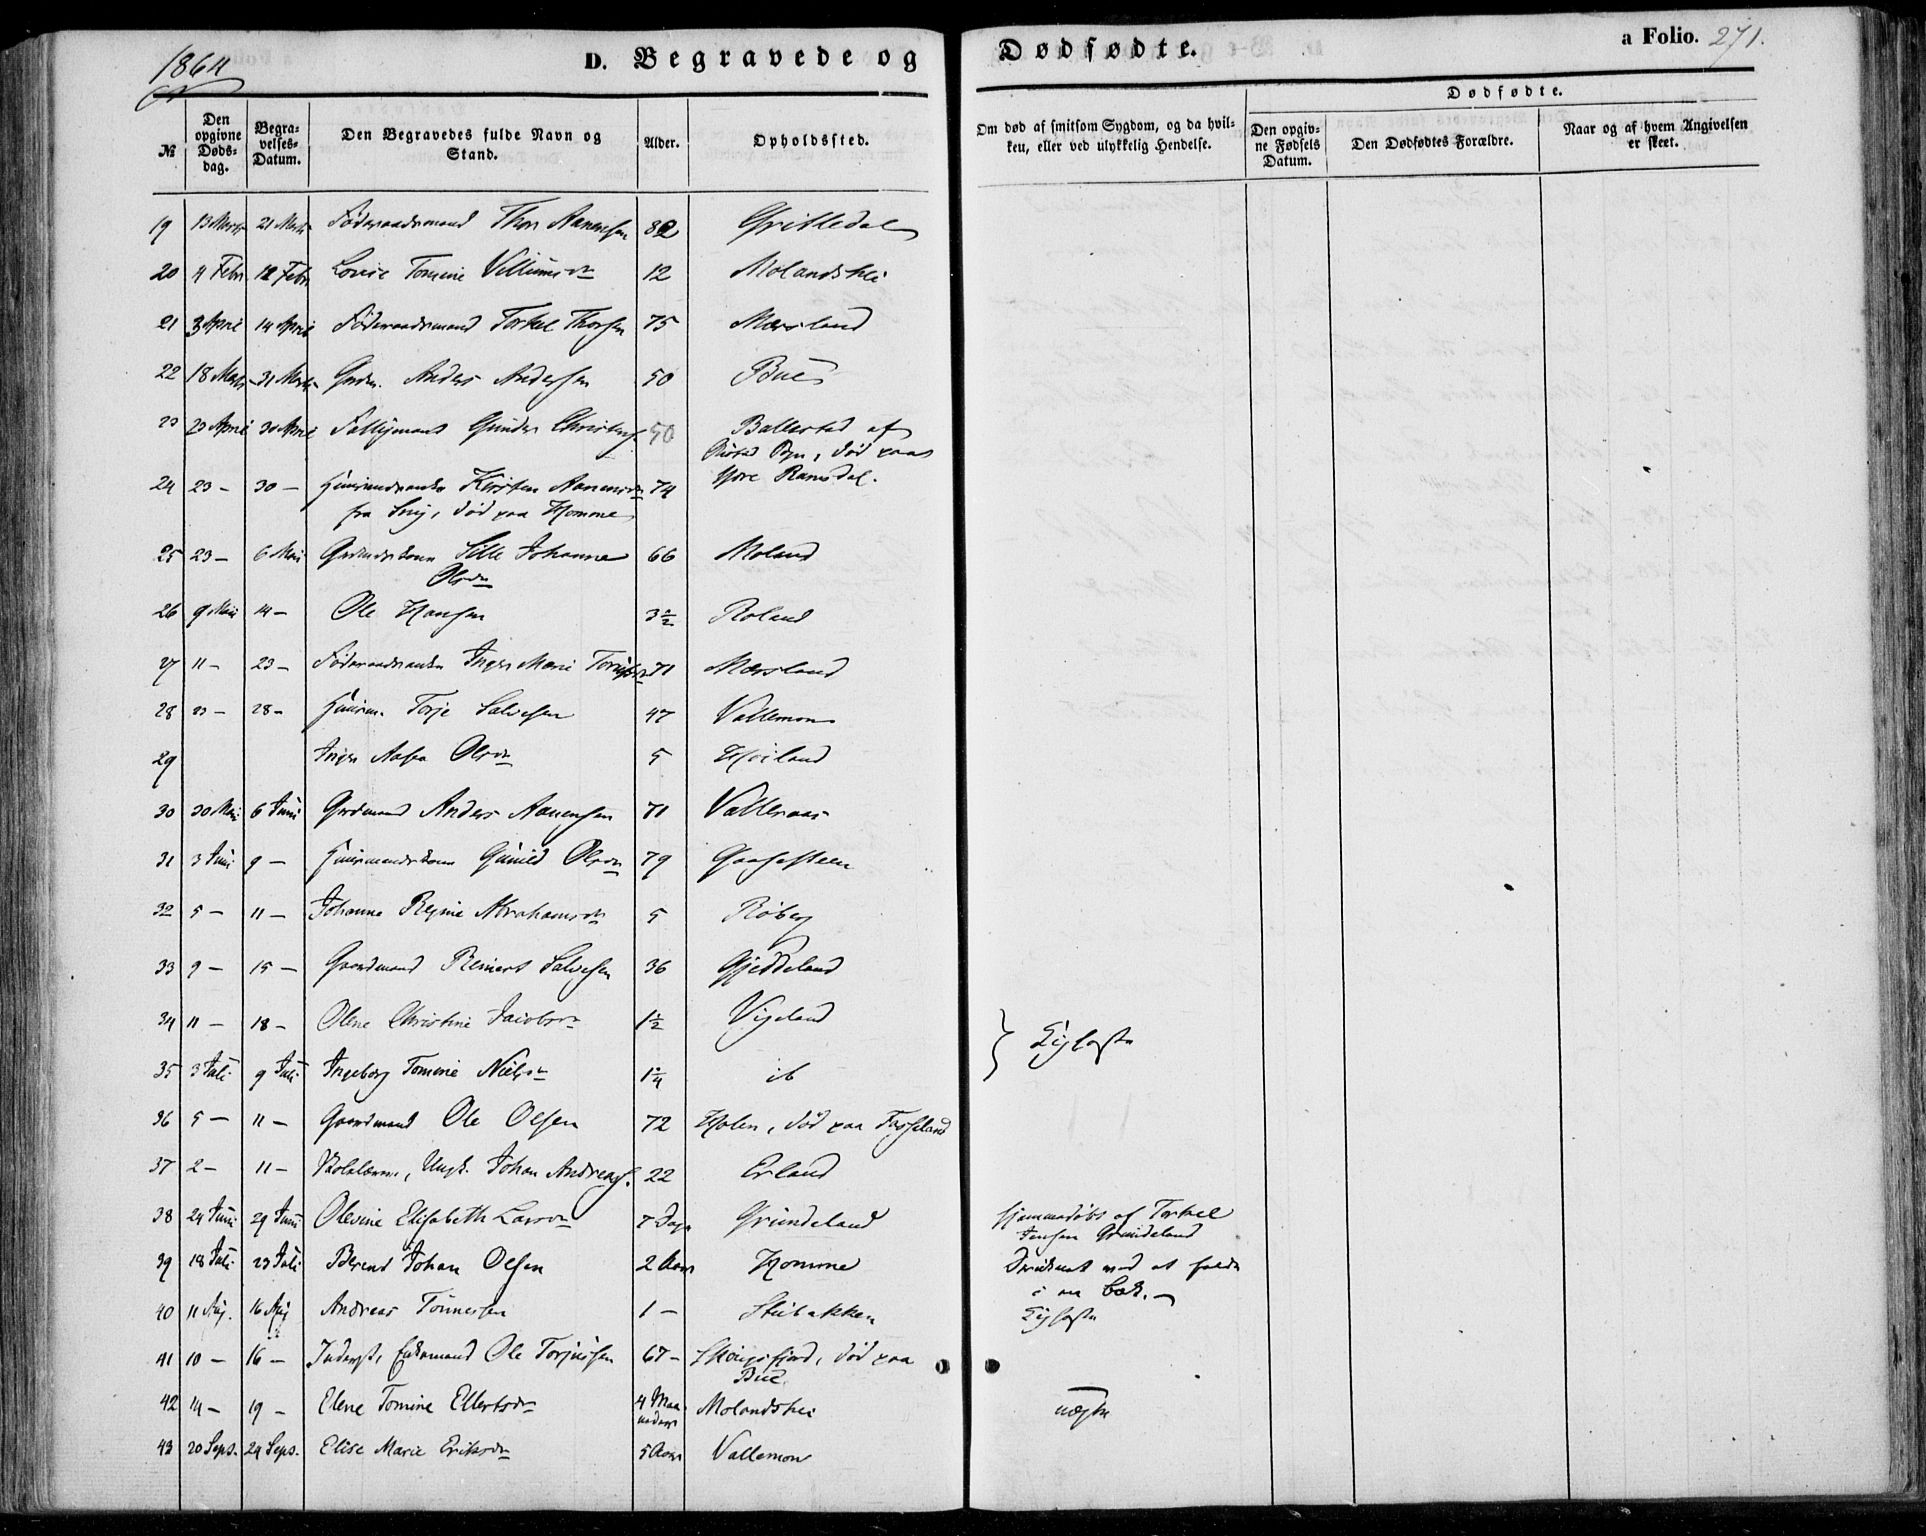 1864
D. Begravede og
Dødfødte.
a Folio. 271.
№
Den opgivne Døds-dag.
Begra-velses-Datum.
Den Begravedes fulde Navn og Stand.
Alder.
Opholdssted.
Om død af smitsom Sygdom, og da hvil-ken, eller ved ulykkelig Hendelse.
Dødfødte.
Den opgiv-ne Fødsels Datum.
Den Dødfødtes Forældre.
Naar og af hvem Angivelsen er skeet.
19 13 Marts 21 Marts Føderaadsmand Thor Aanensen 82
20 4 Febr. 12 Febr Lovise Tomine Villumsdr 12 Molandshei
21 3 April 14 April Føderaadsmand Torkel Thorsen 75 Mersland
22 18 Marts 31 Marts Gmdn. Anders Andersen 50 Bue
23 23 April 30 April Gunder Christens. 50 Ballestad af
Øiestad Pgn, død paa
24 23 — 30 — Kirsten Aanensdr 74 Ramsdal.
død paa Homme
25 23 — 6 Mai Sille Johanne 66 Moland
Olsdr
26 9 Mai 14 — Ole Hansen 3½ Roland
27 11 — 23 — Føderaadsenke Inger Marie 71 Mersland
28 — 28 — Huusm. Torje Salvesen 47 Vallemon
29 Inger Aasa Olsdr 5 Høiland
30 30 Mai 6 Juni Grdmand Anders Aanensen 71 Valleraas
31 3 Juni 9 — Huusmandskone Gunild Olsdr 79 Gaasesteen
32 5 — 11 — Johanne Regine Abrahamsdr 5 Røberg
33 9 — 15 — Gaardmand Reinert Salvesen 36 Gjeddeland
34 11 — 18 — Olene Christine Jacobsdr 1½ Vigeland
35 3 Juli 9 Juli Ingeborg Tomine Nielsdr 1¼ ib
} Kighoste
36 5 — 11 — Gaardmand Ole Olsen 72 Holen, død paa Fasseland
37 2 — 11 — Skolelærer, Ungk. Johan Andreas. 22 Erland
38 24 Juni 29 Juni Olevine Elisabeth Larsdr 7 Dage Grundeland Hjemmedøbt af Torkel
Jensen Grundeland
39 18 Juli 23 Juli Berend Johan Olsen 2 Aar Homme Druknet ved at falde
i en bæk. —
40 11 Aug. 16 Aug Andreas Tønnesen 1 — Stubakken Kighoste
41 10 — 16 — Inderst, Enkemand Ole Torjusen 67 — Skougsfjord, død paa
Bue.
42 14 — 19 — Elene Tomine Ellertsdr 4 Maa-neder Molandshei
43 20 Seps. 24 Seps. Elise Marie Eriksdr 5 Aar Vallemon